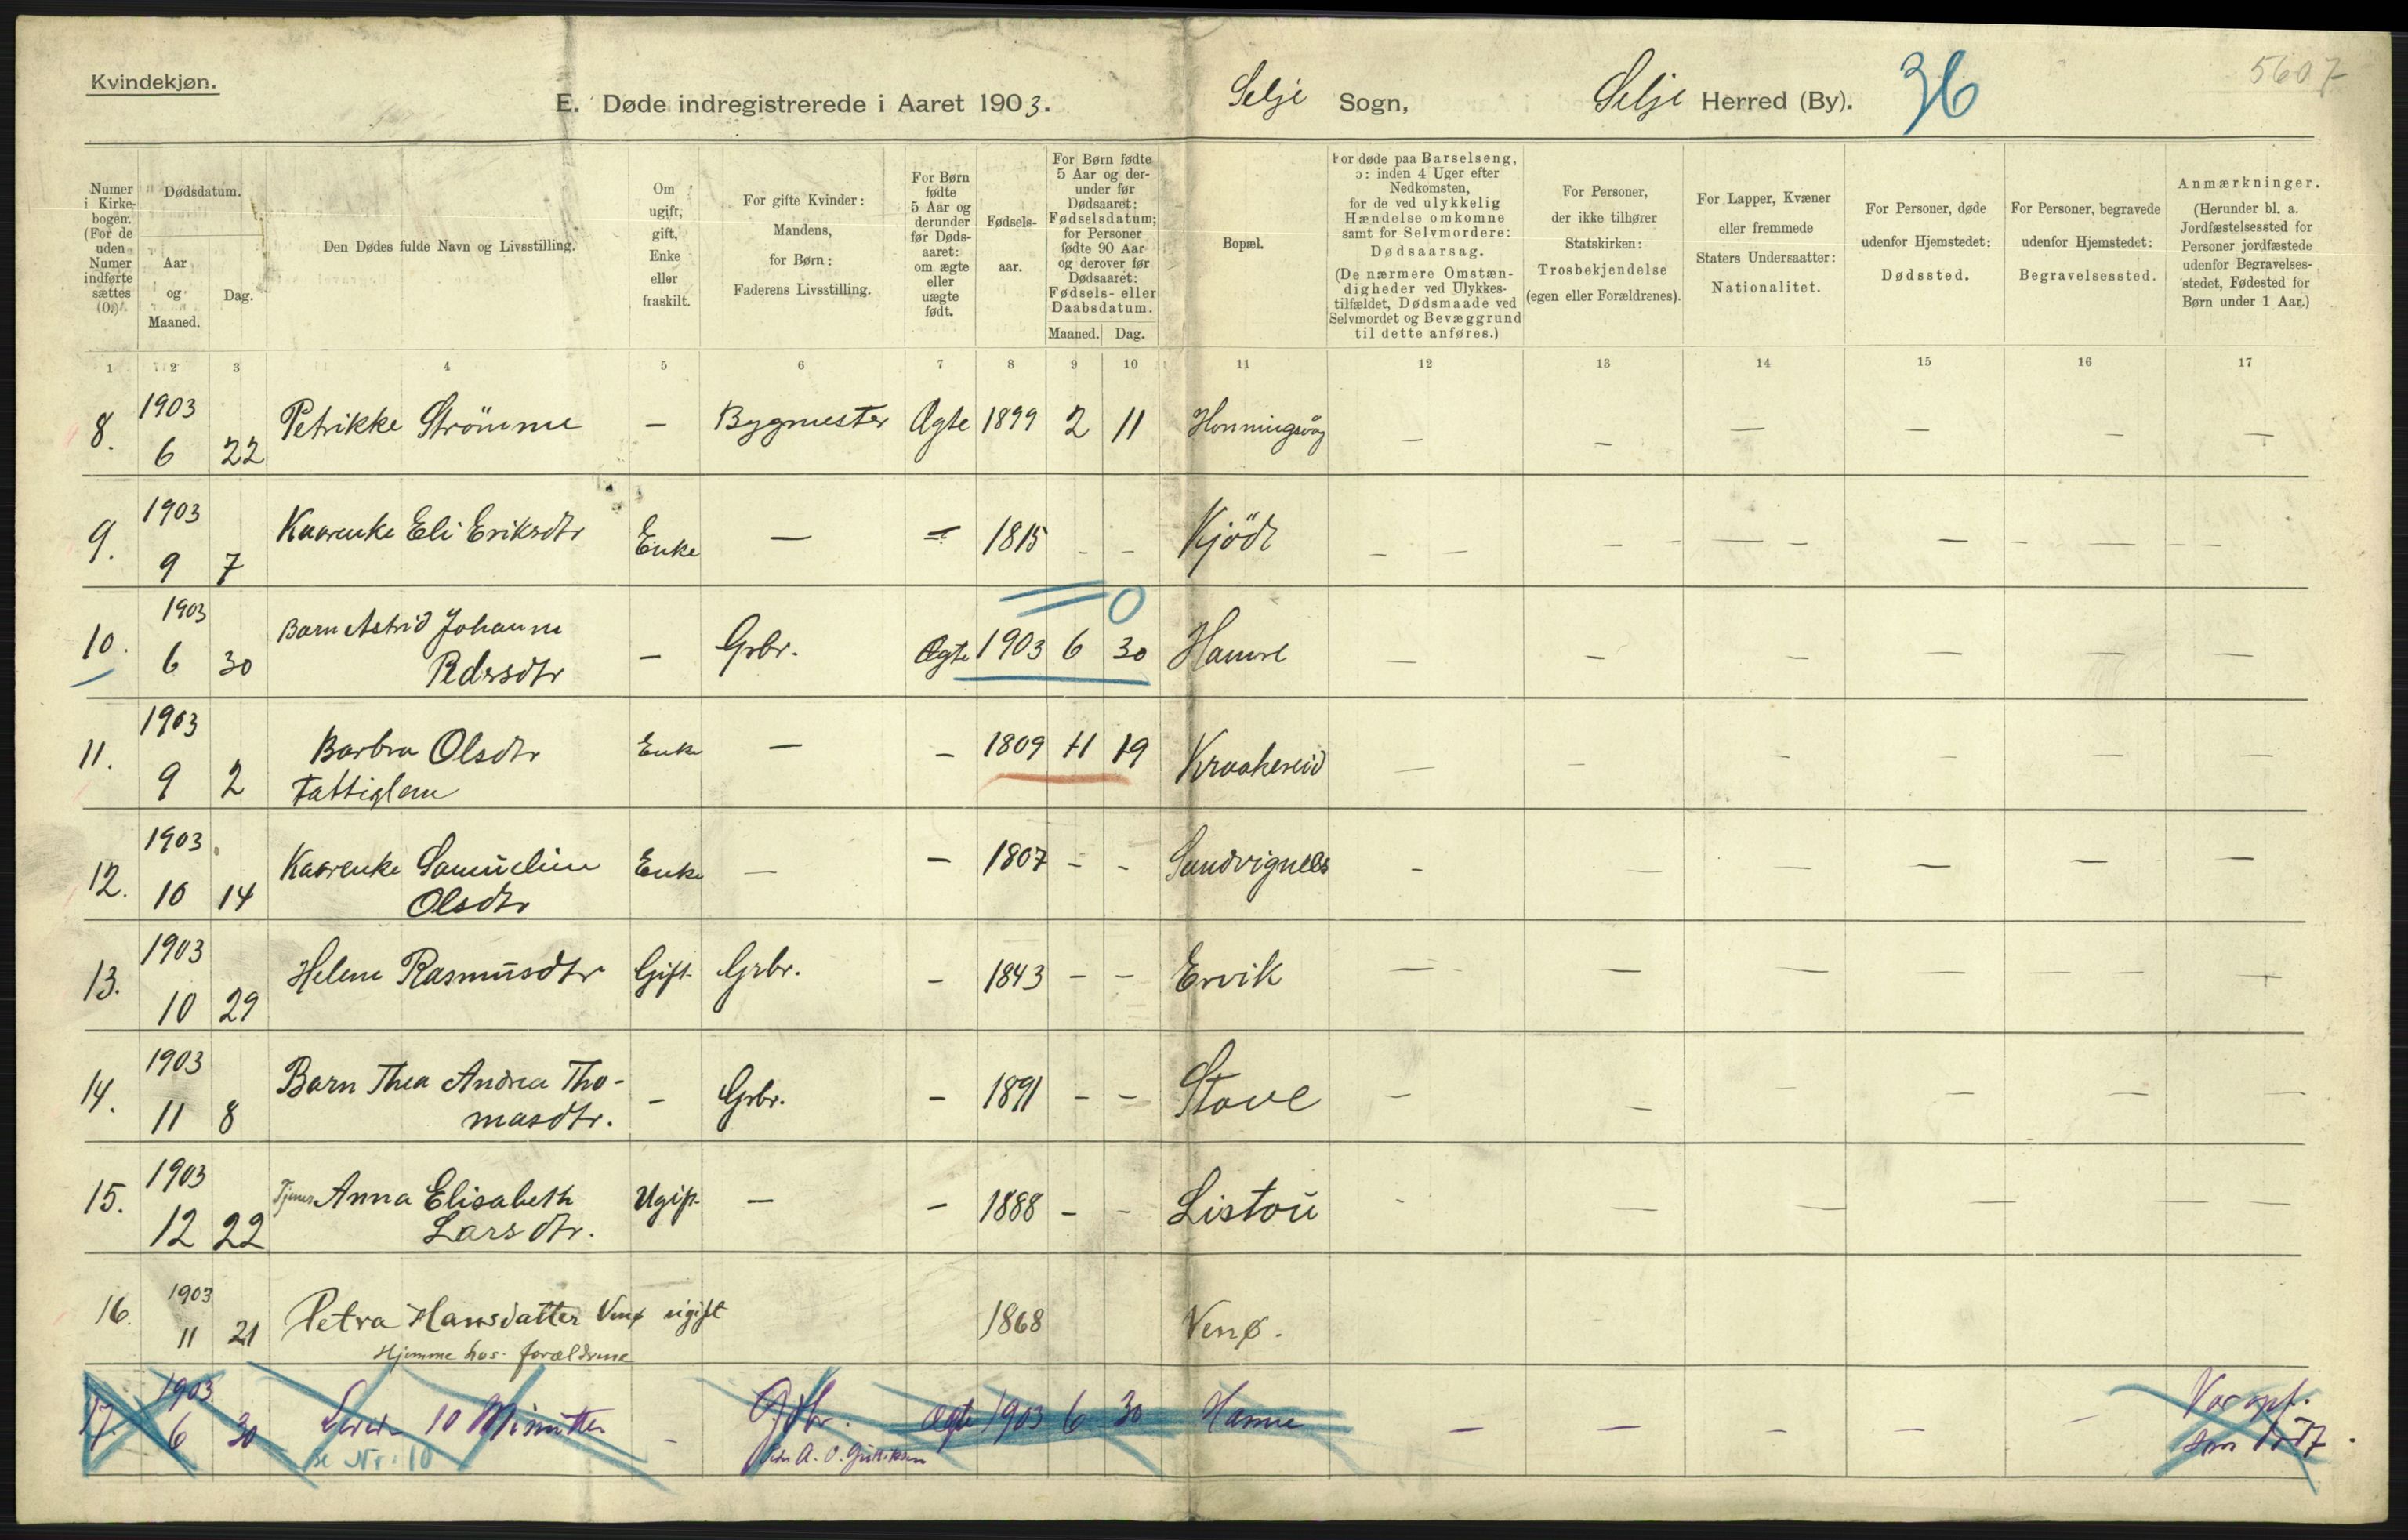 Kvindekjøn.
5607
E. Døde indregistrerede i Aaret 1903. Selje Sogn, Selje Herred (By). 36
Numer i Kirke- bogen. (For de uden Numer indførte sættes (0).)
Dødsdatum.
Aar og Maaned.
Dag.
Den Dødes fulde Navn og Livsstilling.
Om ugift, gift, Enke eller fraskilt.
For gifte Kvinder: Mandens, for Børn: Faderens Livsstilling.
For Børn fødte 5 Aar og derunder før Døds- aaret: om ægte eller uægte født.
Fødsels- aar.
For Børn fødte 5 Aar og der- under før Dødsaaret: Fødselsdatum; for Personer fødte 90 Aar og derover før Dødsaaret: Fødsels- eller Daabsdatum.
Maaned. Dag.
Bopæl.
For døde paa Barselseng, ɔ: inden 4 Uger efter Nedkomsten, for de ved ulykkelig Hændelse omkomne samt for Selvmordere: Dødsaarsag. (De nærmere Omstæn- digheder ved Ulykkes- tilfældet, Dødsmaade ved Selvmordet og Bevæggrund til dette anføres.)
For Personer, der ikke tilhører Statskirken: Trosbekjendelse (egen eller Forældrenes).
For Lapper, Kvæner eller fremmede Staters Undersaatter: Nationalitet.
For Personer, døde udenfor Hjemstedet: Dødssted.
For Personer, begravede udenfor Hjemstedet: Begravelsessted.
Anmærkninger. (Herunder bl. a. Jordfæstelsessted for Personer jordfæstede udenfor Begravelses- stedet, Fødested for Børn under 1 Aar.)
1 2 3 4 5 6 7 8 9 10 11 12 13 14 15 16 17
8. 1903 6 22 Petrikke Strömme — Bygmester Ægte 1899 2 11 Honningsvåg — — — — — —
9. 1903 9 7 Kaarenke Eli Eriksdtr Enke — — 1815 - - Kjöde — — — — — —
0
10. 1903 6 30 Barn Astrid Johanne
Pedersdtr — Grbr. Ægte 1903 6 30 Hamre — — — — — —
11. 1903 9 2 Barbra Olsdtr Enke — — 1809 11 19 Kraakeneid — — — — — —
Fattiglem
12. 1903 10 14 Kaarenke Samueline Enke — — 1807 - - Sandvignæs - — — — — —
Olsdtr
13. 1903 10 29 Helene Rasmusdtr Gift Grbr. - 1843 - - Ervik — — — — — —
14. 1903 11 8 Barn Thea Andrea Tho-
masdtr. — Grbr. - 1891 - - Stove — — — — — —
15. 1903 12 22 Tjener Anna Elisabeth Ugift — - 1888 - - Listou - — — — — —
Larsdtr.
16. 1903 11 21 Petra Hansdatter Venø ugift 1868 Venø.
Hjemme hos forældrene
17. 1903 6 30 Levede 10 Minutter - Gbr. ægte 1903 6 30 Hamre — — — — —
se Nr. 10